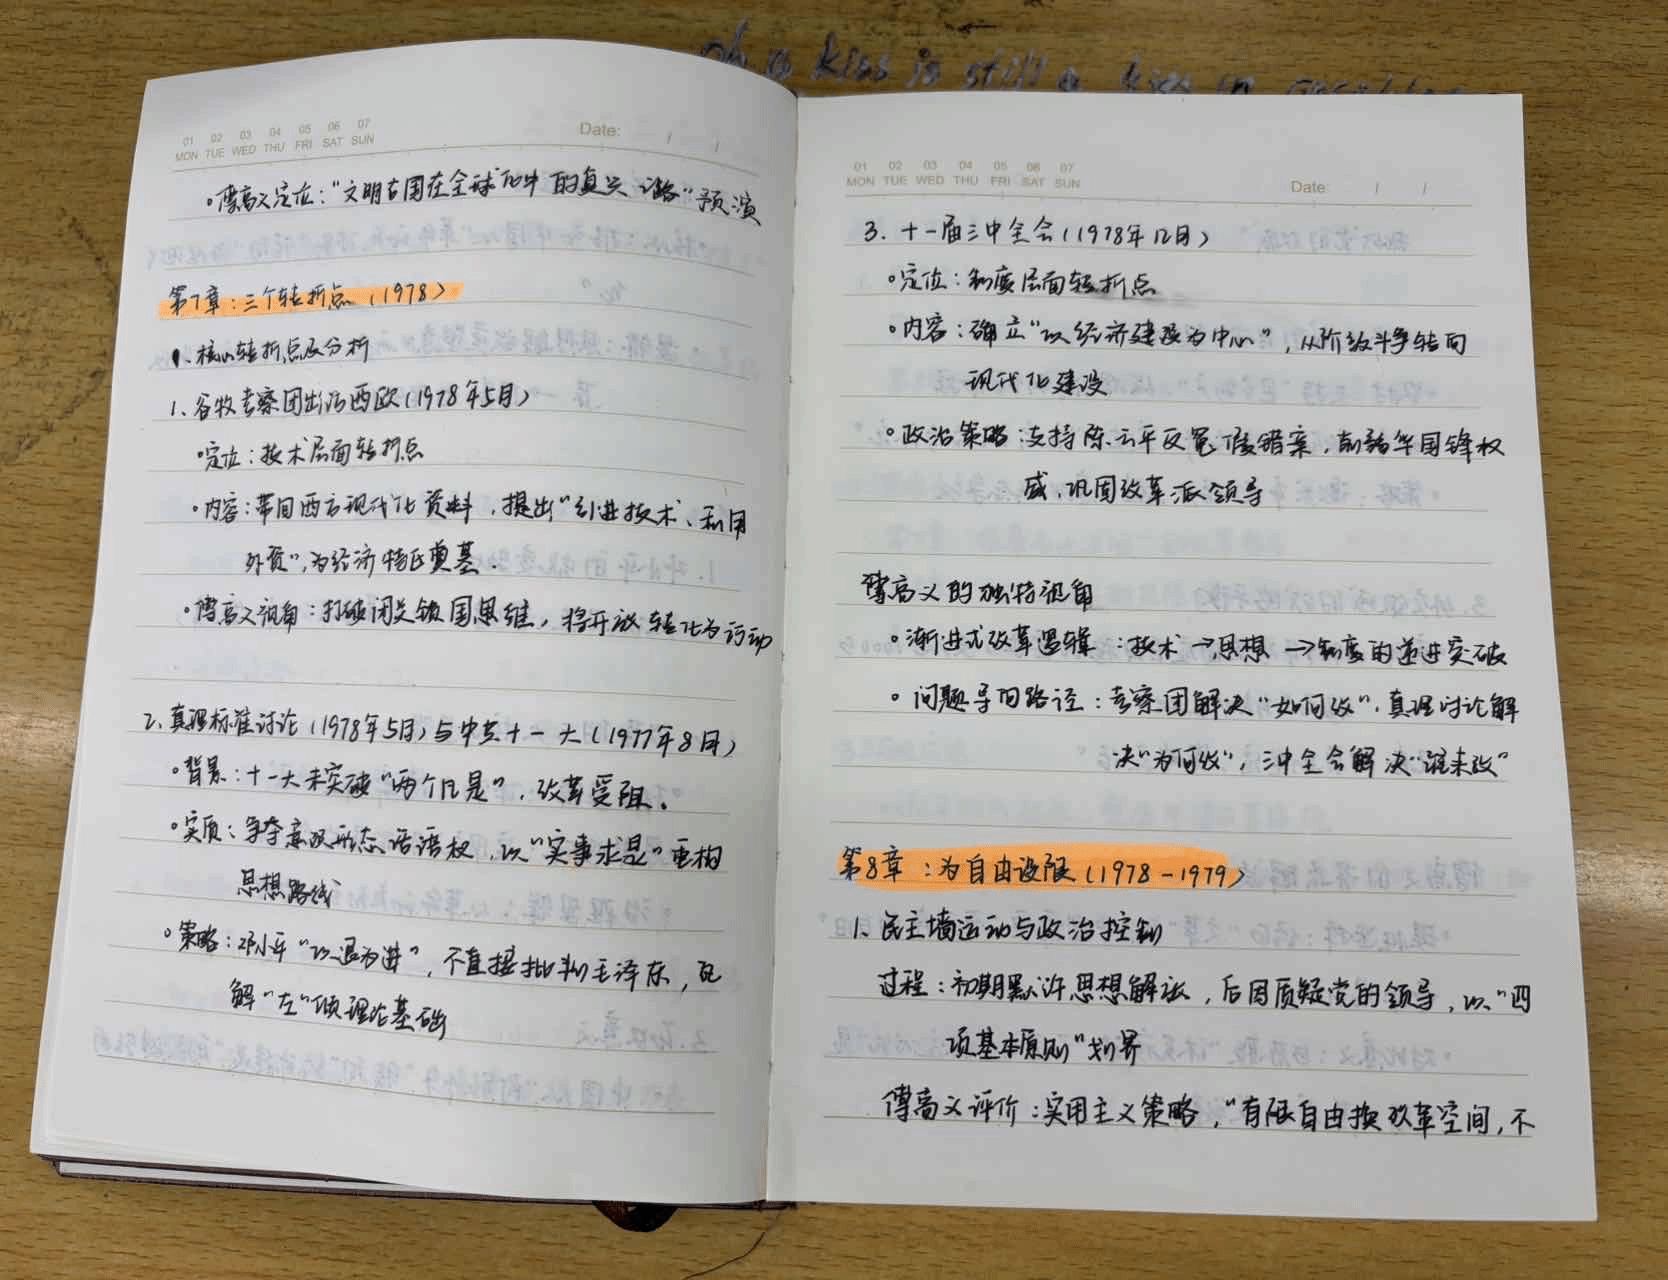 oh a kiss is still a kiss in
01 02 03 04 05 06 07
MON TUE WED THU FRI SAT SUN
Date: / /
•傅高义定位：“文明古国在全球化中的复兴之路”预演
第7章：三个转折点（1978）
1、核心转折点及分析
1、谷牧考察团出访西欧（1978年5月）
•定位：技术层面转折点
•内容：带回西方现代化资料，提出“引进技术、利用
外资”，为经济特区奠基.
•傅高义视角：打破闭关锁国思维，将开放转化为行动
2、真理标准讨论（1978年5月）与中共十一大（1977年8月）
•背景：十一大未突破“两个凡是”，改革受阻。
•实质：争夺意识形态话语权，以“实事求是”重构
思想路线
•策略：邓小平“以退为进”，不直接批判毛泽东，瓦
解“左”倾理论基础
01 02 03 04 05 06 07
MON TUE WED THU FRI SAT SUN
Date: / /
3. 十一届三中全会（1978年12月）
•定位：制度层面转折点
•内容：确立“以经济建设为中心”，从阶级斗争转向
现代化建设
•政治策略：支持陈云平反冤假错案，削弱华国锋权
威，巩固改革派领导
傅高义的独特视角
•渐进式改革逻辑：技术→思想→制度的递进突破
•问题导向路径：考察团解决“如何改”，真理讨论解
决“为何改”，三中全会解决“谁来改”
第8章：为自由设限（1978-1979）
1、民主墙运动与政治控制
过程：初期默许思想解放，后因质疑党的领导，以“四
项基本原则”划界
傅高义评价：实用主义策略，“有限自由换改革空间，不